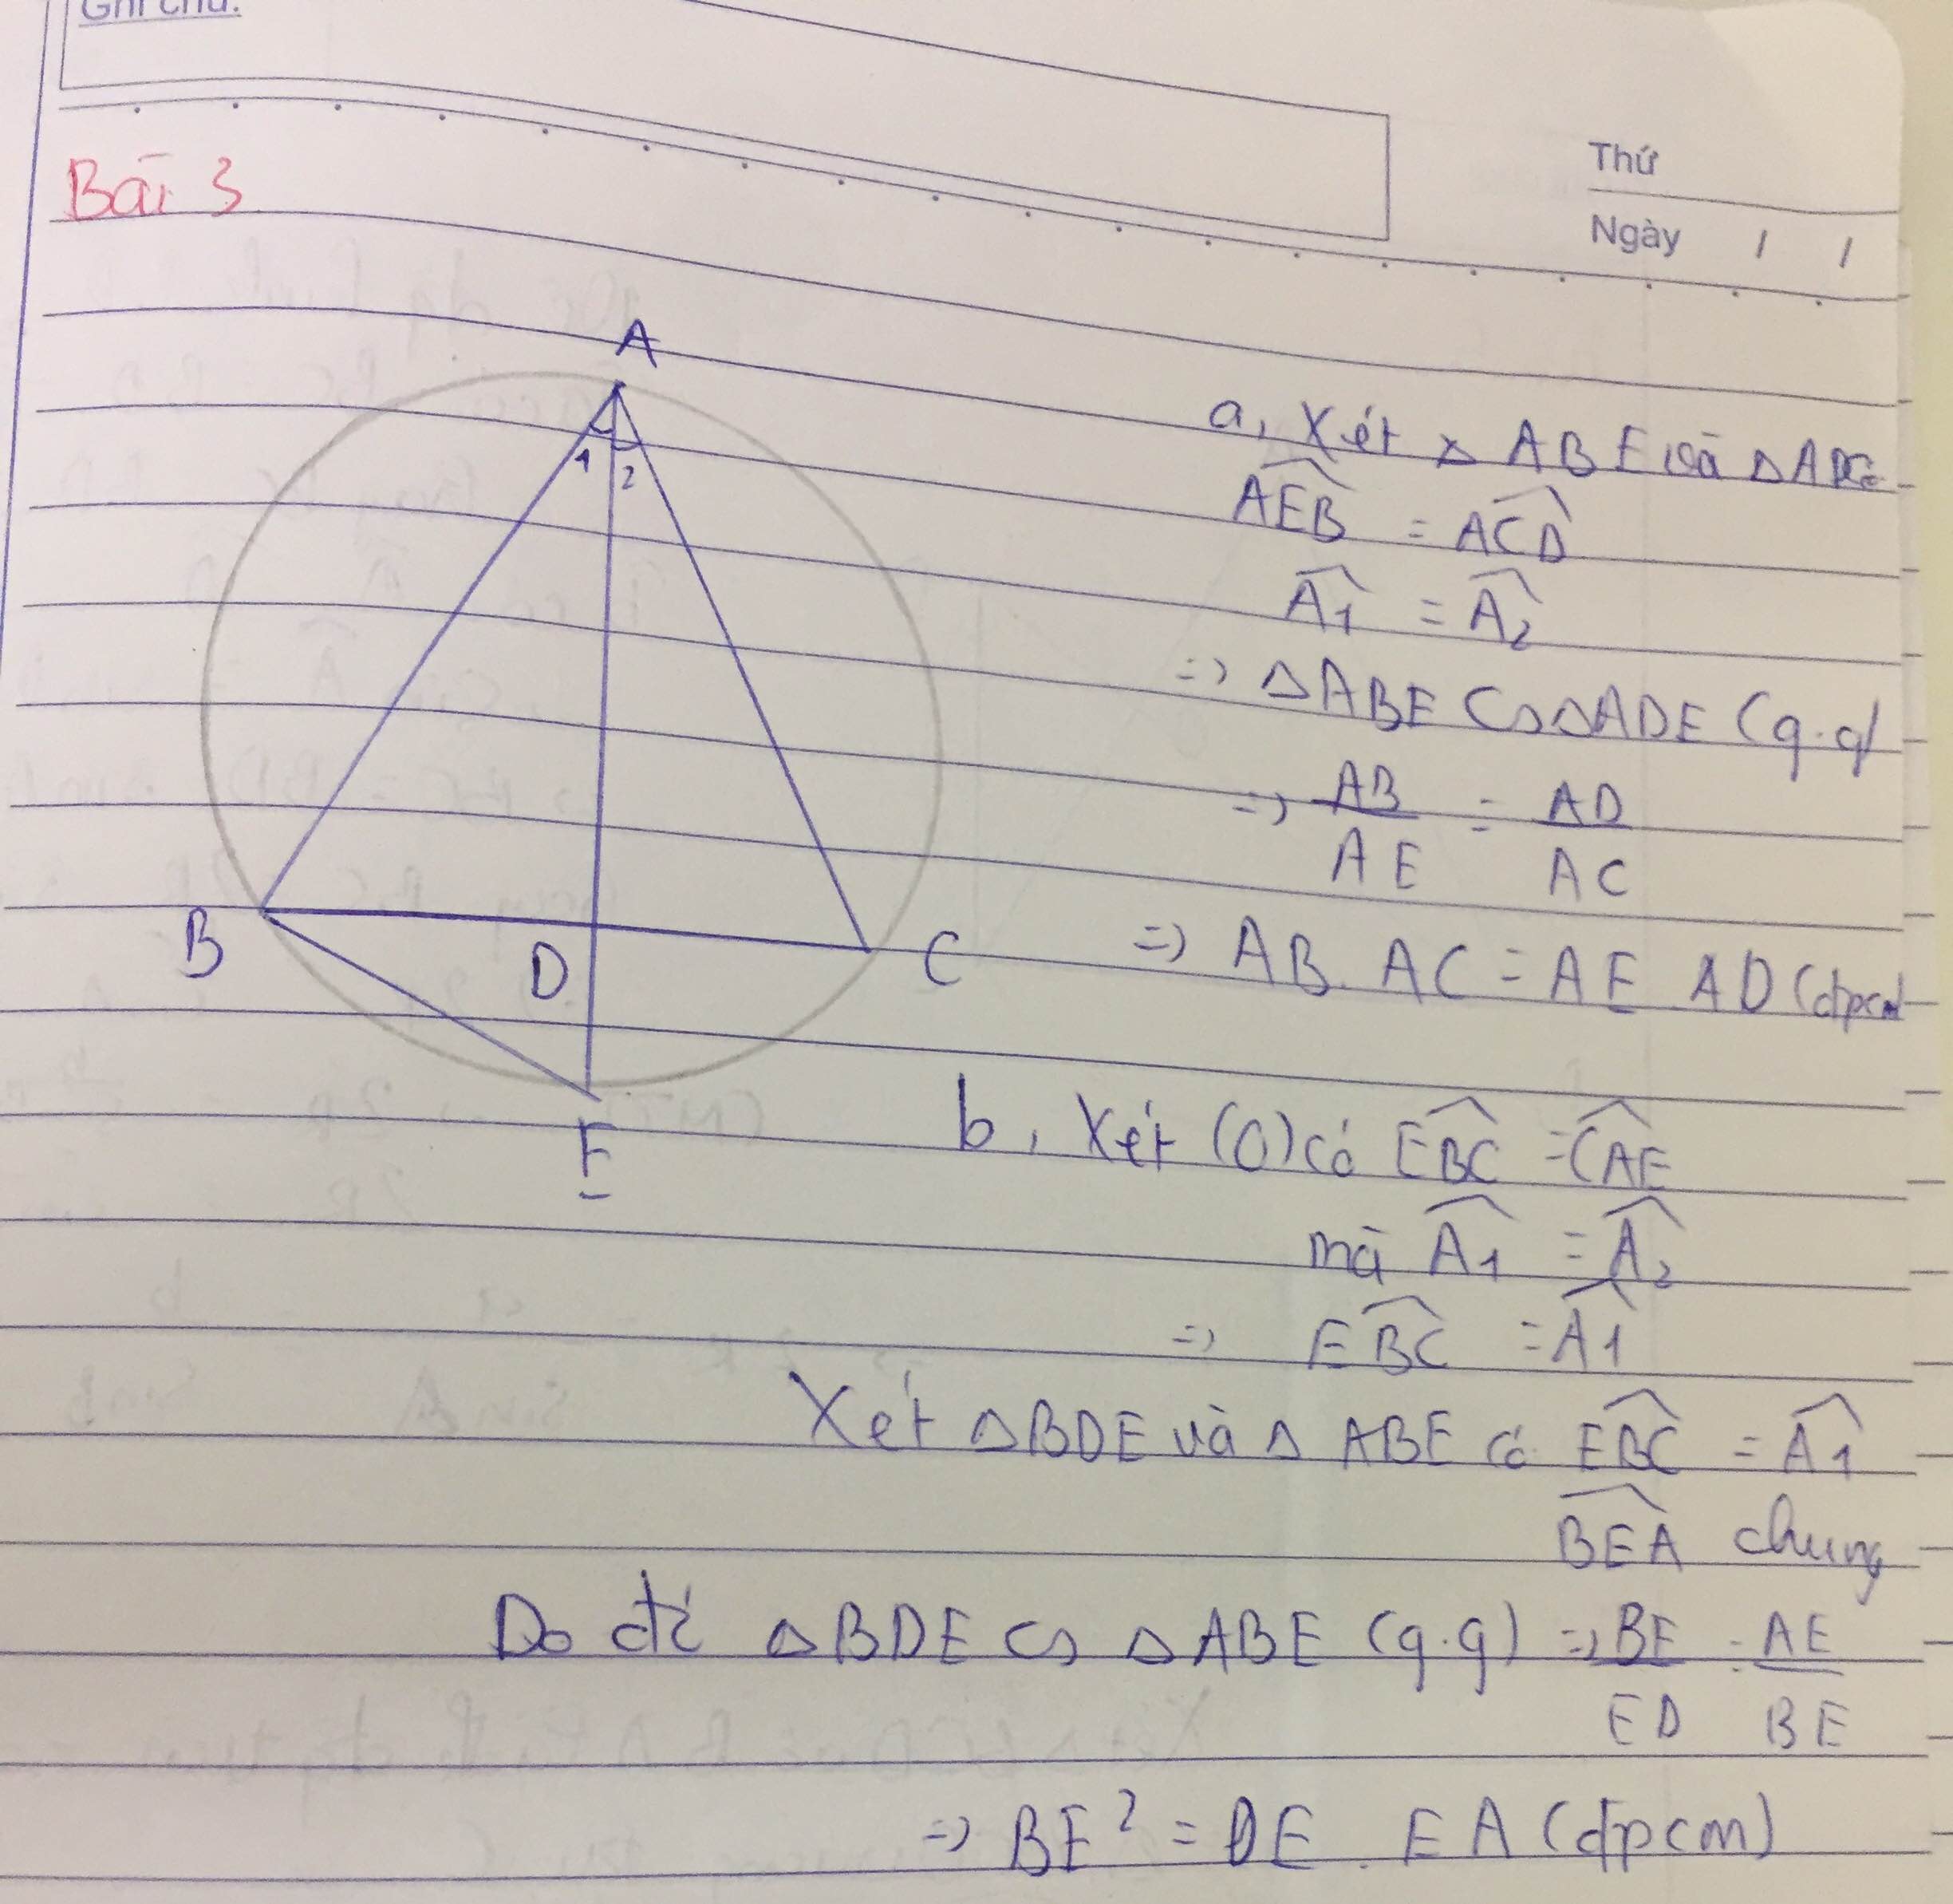 Ghi chú:
Thứ
Ngày / /
Bài 3
A
1 2
B
D
C
E
a, Xét △ ABE và △ ADC
$\widehat{AEB} = \widehat{ACD}$
$\widehat{A_1} = \widehat{A_2}$
=> △ABE ∽ △ADE (g.g)
=> $\frac{AB}{AE} = \frac{AD}{AC}$
=> AB. AC = AE. AD (đpcm
b, Xét (O) có $\widehat{EBC} = \widehat{CAE}$
mà $\widehat{A_1} = \widehat{A_2}$
=> $\widehat{EBC} = \widehat{A_1}$
Xét △BDE và △ ABE có $\widehat{EBC} = \widehat{A_1}$
$\widehat{BEA}$ chung
Do đó △BDE ∽ △ABE (g.g) => $\frac{BE}{ED} = \frac{AE}{BE}$
=> BE² = DE. EA (đpcm)